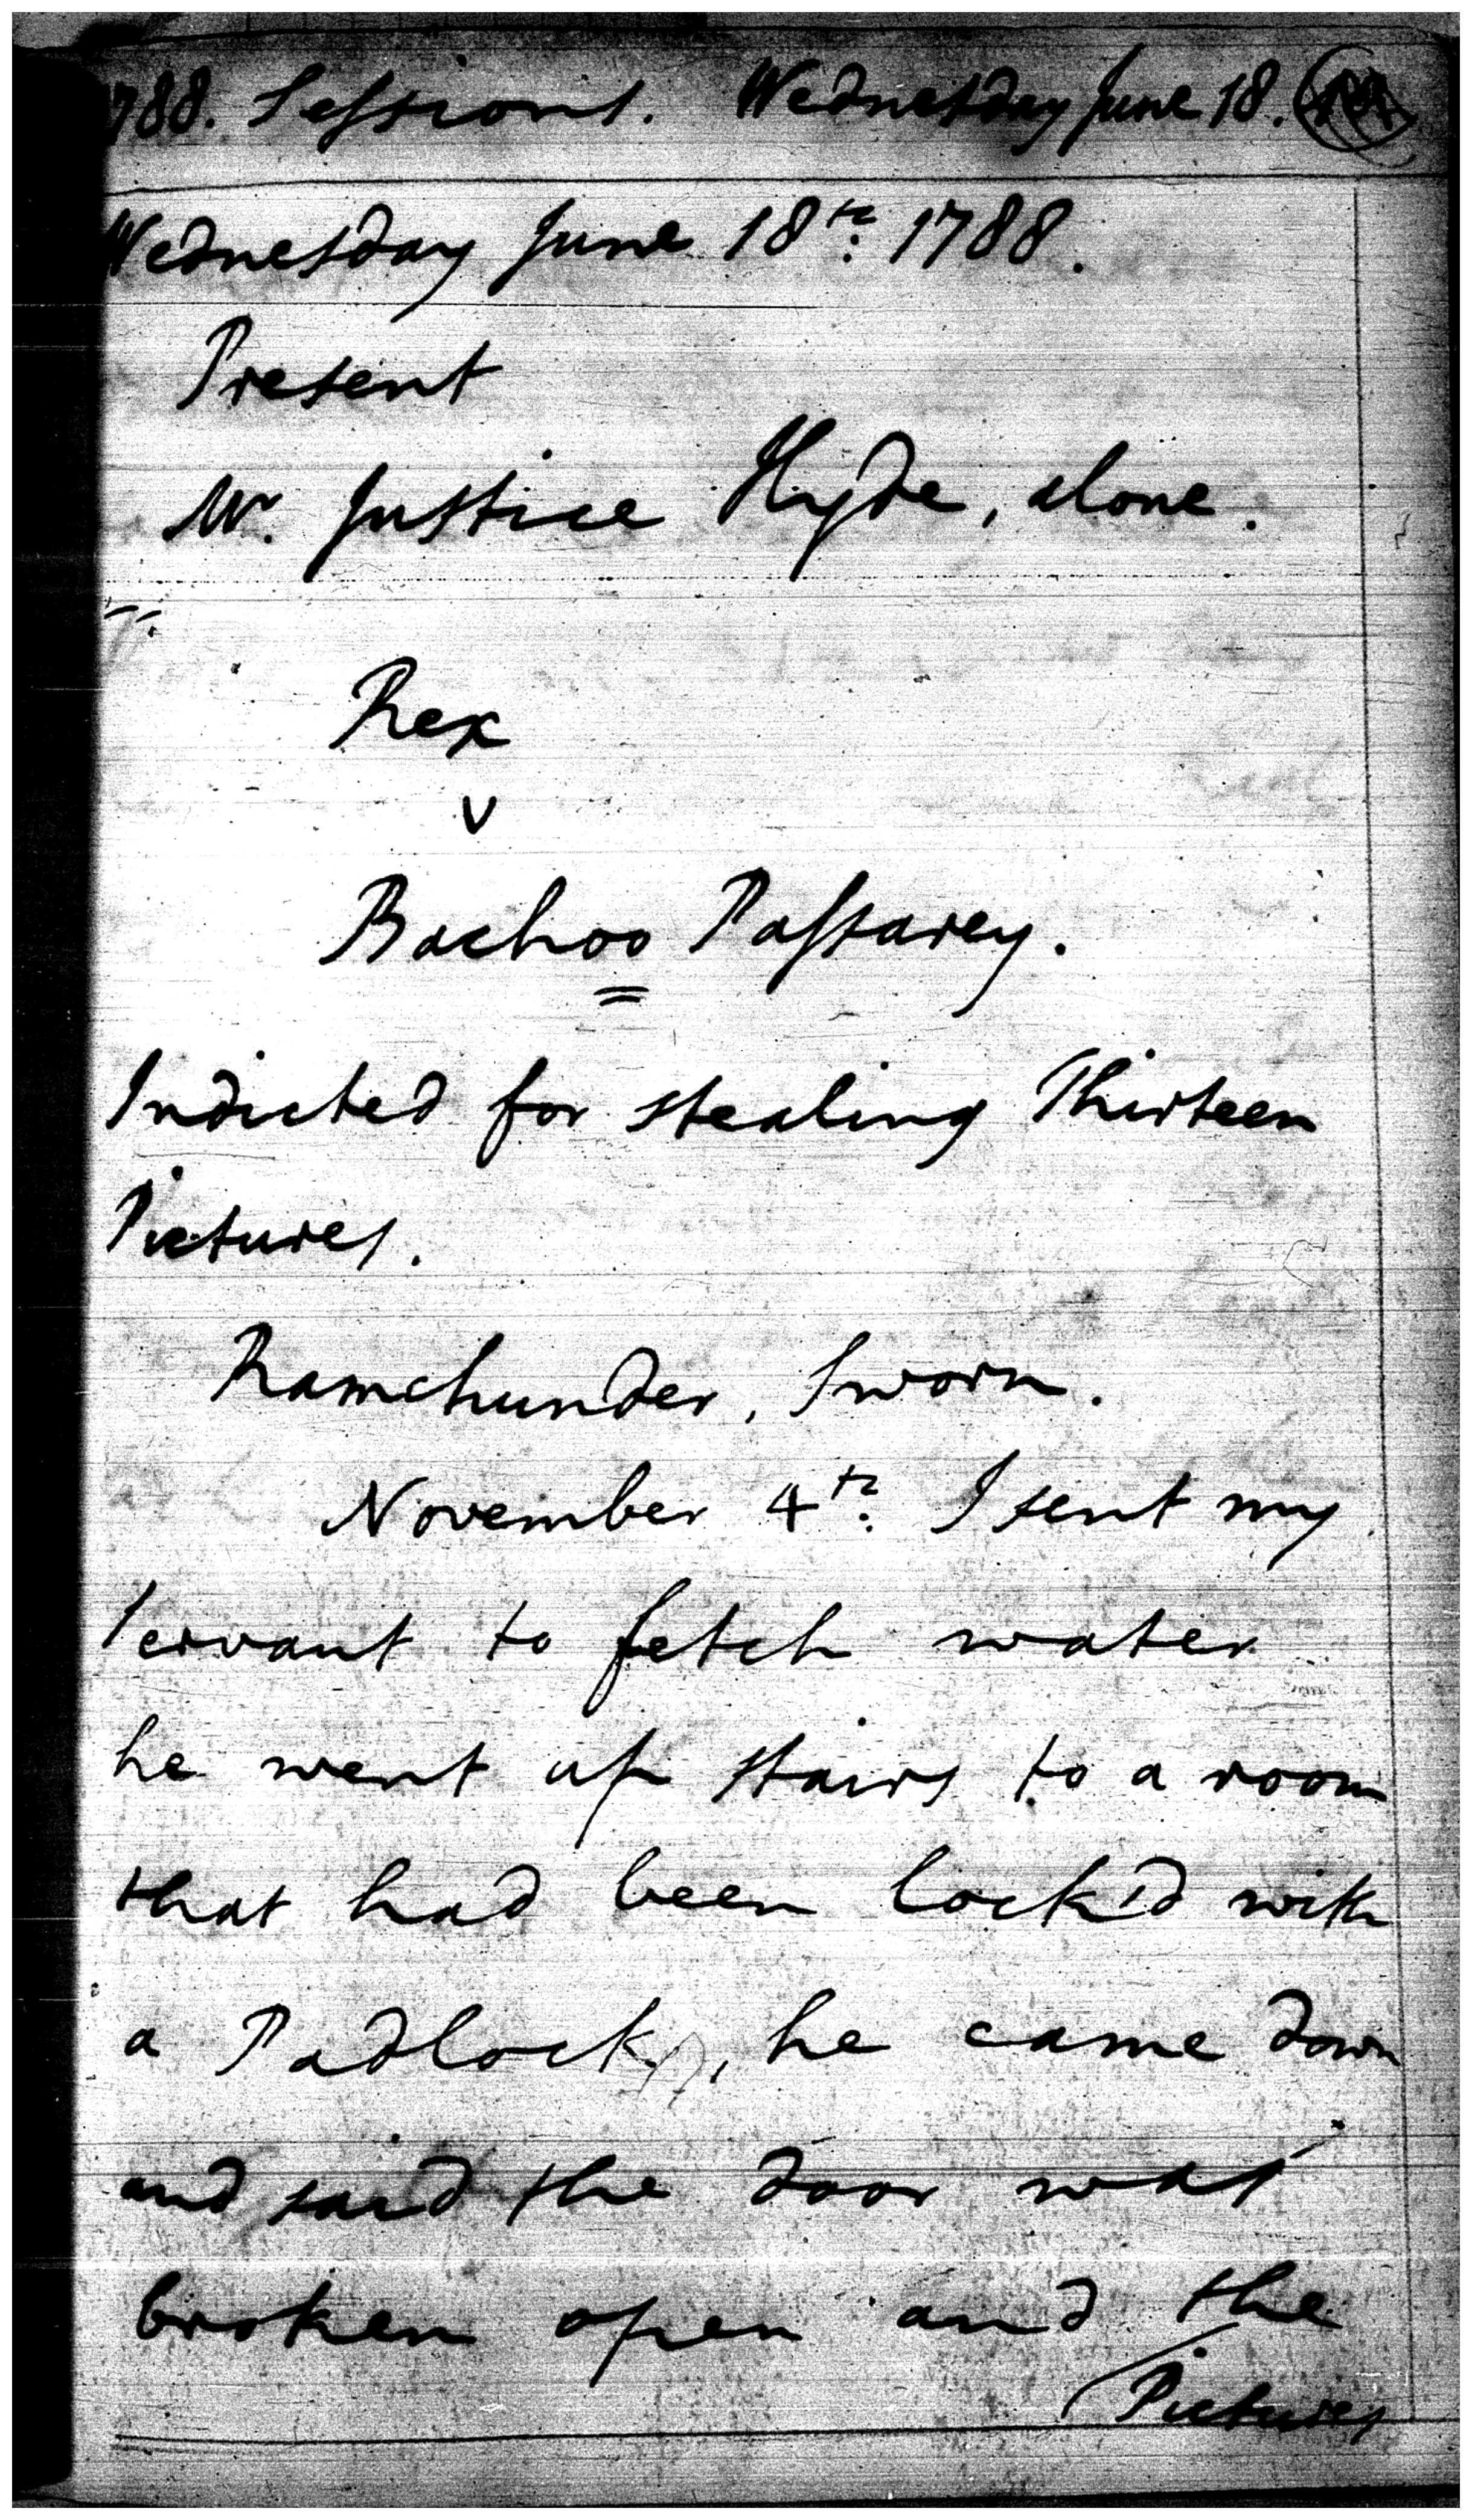 1788. Sessions. Wednesday June 18.
Wednesday June 18th. 1788.
Present
Mr. Justice Hyde, alone.
Rex
v
Bachoo Passarey.
Indicted for stealing Thirteen
Pictures.
Ramchunder, Sworn.
November 4th. I sent my
Servant to fetch water
he went up stairs to a room
that had been lock'd with
a Padlock, he came down
and said the door was
broken open and the
Pictures